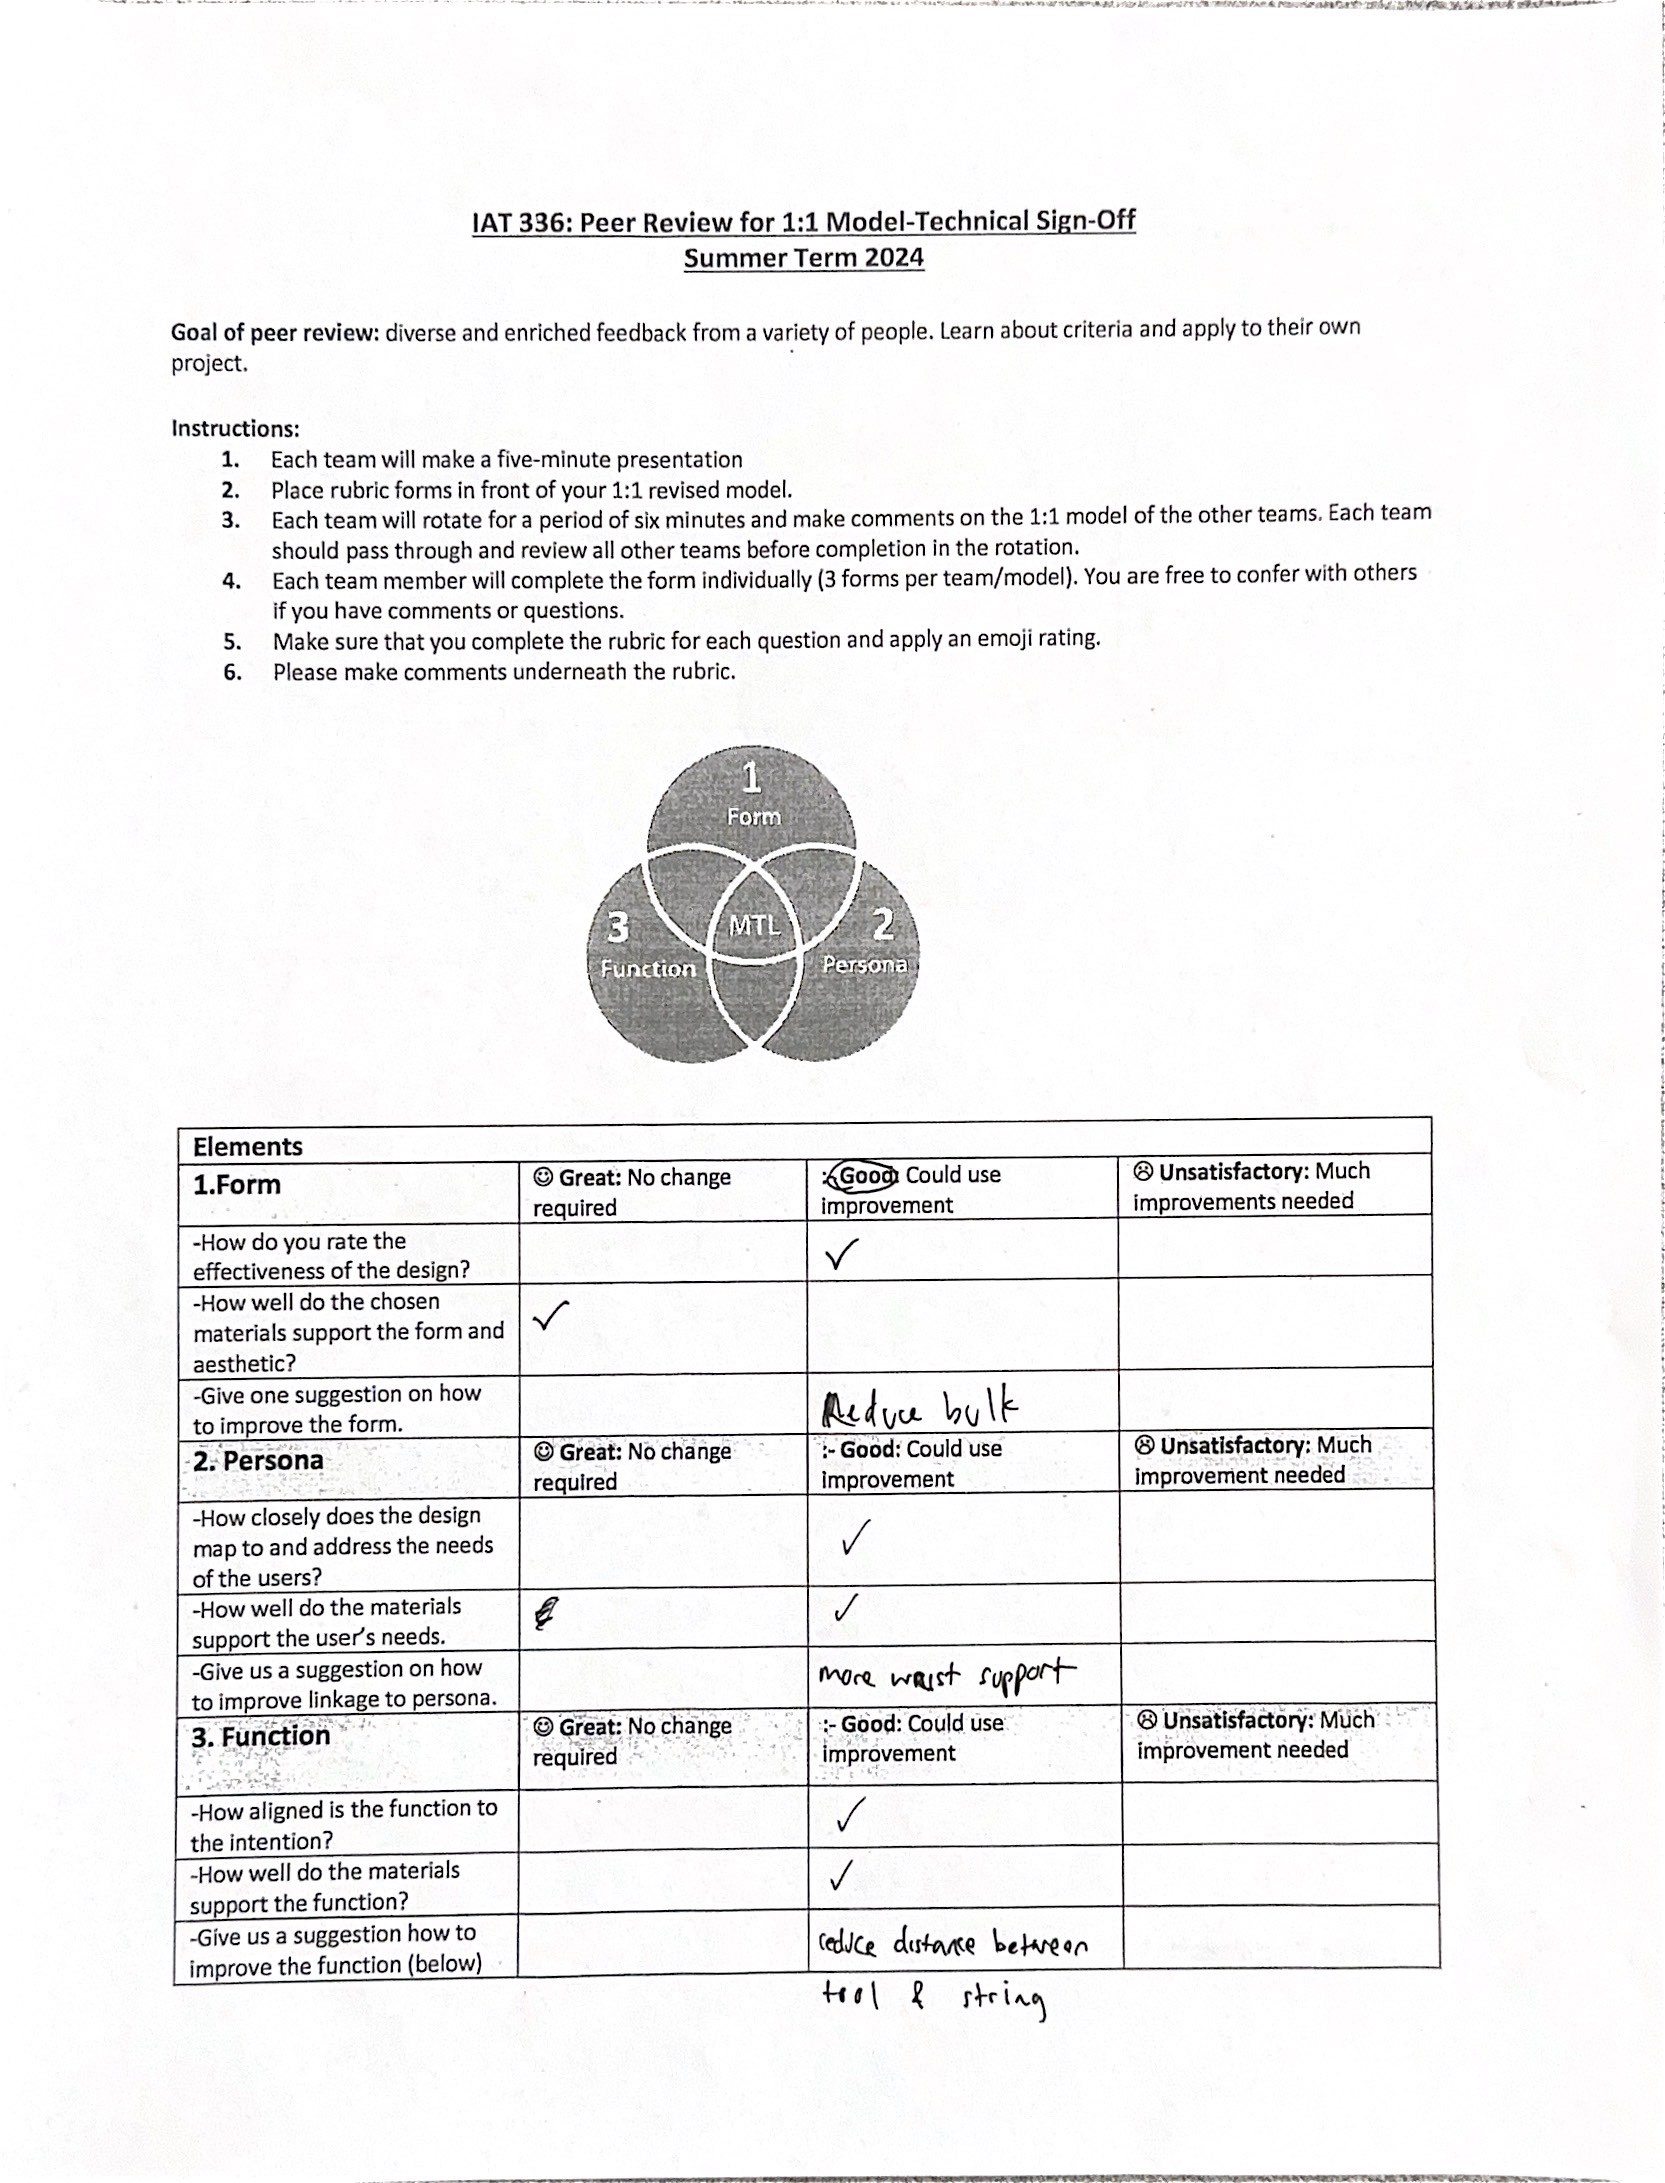 IAT 336: Peer Review for 1:1 Model-Technical Sign-Off
Summer Term 2024
Goal of peer review: diverse and enriched feedback from a variety of people. Learn about criteria and apply to their own
project.
Instructions:
1. Each team will make a five-minute presentation
2. Place rubric forms in front of your 1:1 revised model.
3. Each team will rotate for a period of six minutes and make comments on the 1:1 model of the other teams. Each team
should pass through and review all other teams before completion in the rotation.
4. Each team member will complete the form individually (3 forms per team/model). You are free to confer with others
if you have comments or questions.
5. Make sure that you complete the rubric for each question and apply an emoji rating.
6. Please make comments underneath the rubric.
1
Form
3
Function
MTL
2
Persona
Elements
1.Form
☺ Great: No change
required
:- Good: Could use
improvement
☹ Unsatisfactory: Much
improvements needed
-How do you rate the
effectiveness of the design?
✓
-How well do the chosen
materials support the form and
aesthetic?
✓
-Give one suggestion on how
to improve the form.
Reduce bulk
2. Persona
☺ Great: No change
required
:- Good: Could use
improvement
☹ Unsatisfactory: Much
improvement needed
-How closely does the design
map to and address the needs
of the users?
✓
-How well do the materials
support the user's needs.
✓
-Give us a suggestion on how
to improve linkage to persona.
more wrist support
3. Function
☺ Great: No change
required
:- Good: Could use
improvement
☹ Unsatisfactory: Much
improvement needed
-How aligned is the function to
the intention?
✓
-How well do the materials
support the function?
✓
-Give us a suggestion how to
improve the function (below)
reduce distance between
tool & string